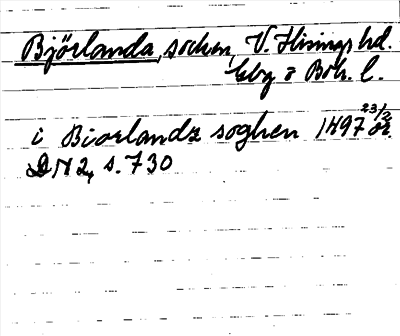 Björlanda, socken, V. Hisings hd.
Gbg o Boh. l.
i Biorlanda soghen 1497 23/2 or.
DN 2, s. 730